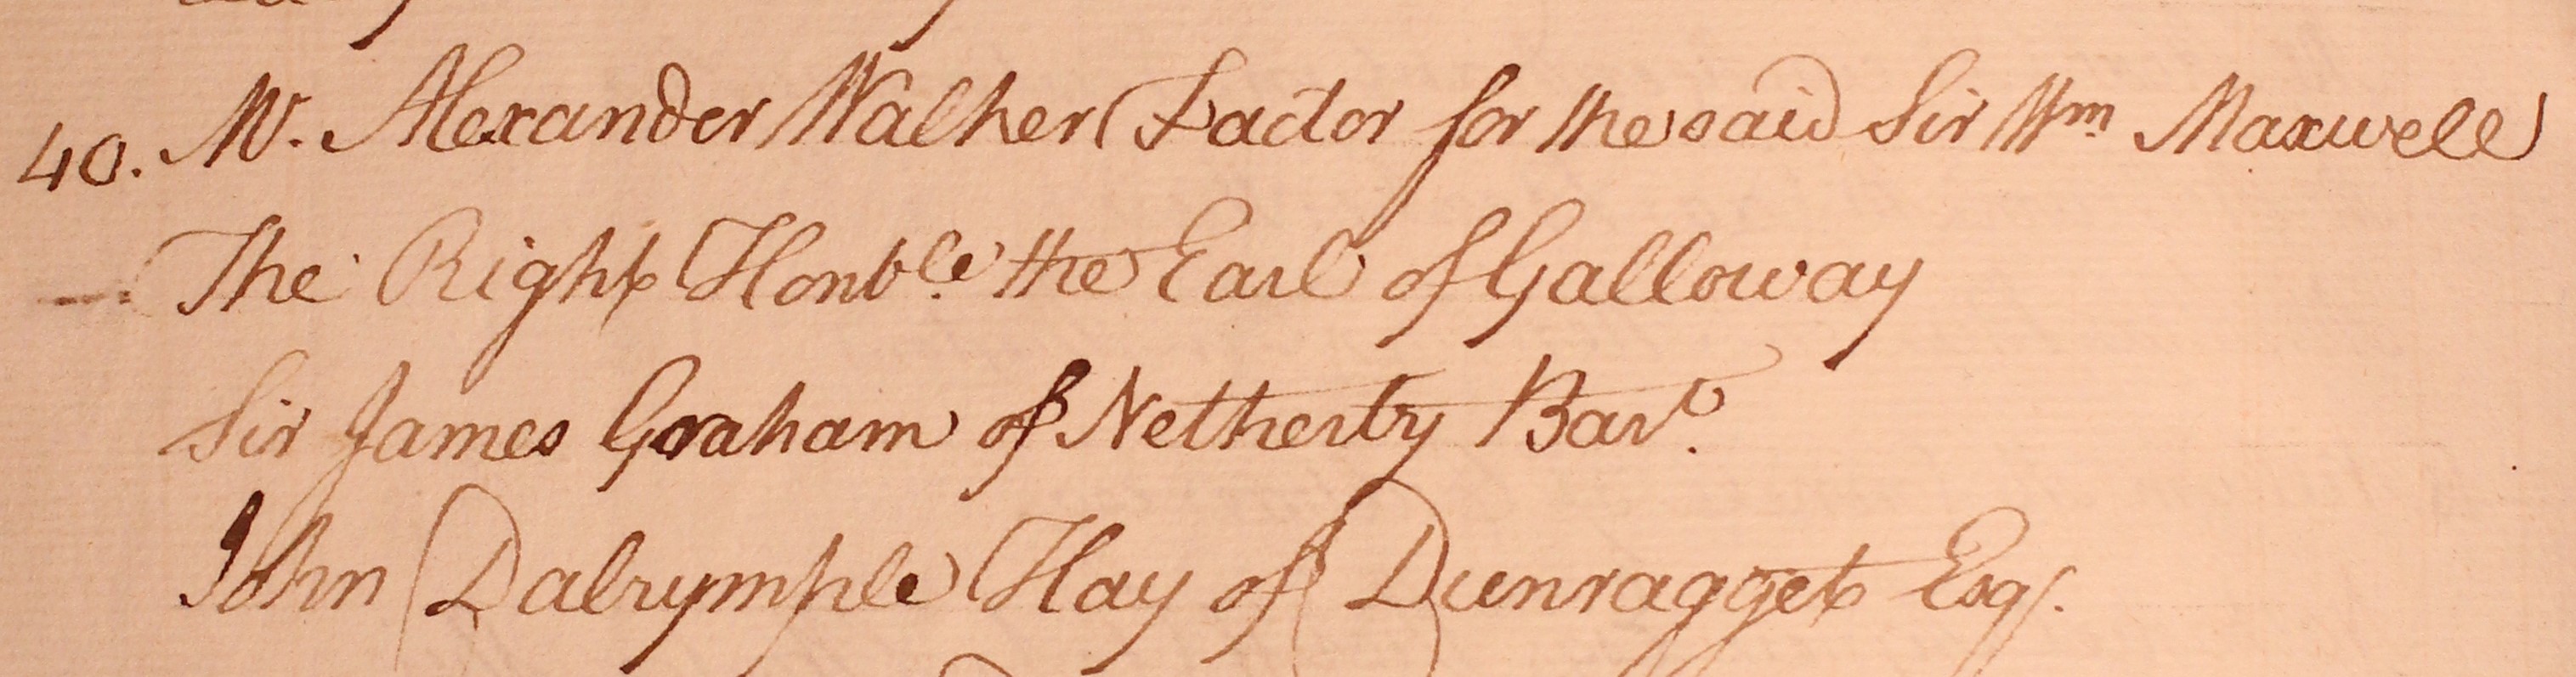 40. Mr. Alexander Walker Factor for the said Sir Wm Maxwell
The Right Honble. the Earl of Galloway
Sir James Graham of Netherby Bart.
John Dalrymple Hay of Dunragget Esqr.